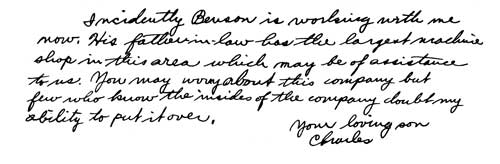 Incidently Benson is working with me
now. His father-in-law has the largest machine
shop in this area which may be of assistance
to us. You may worry about this company but
few who know the insides of the company doubt my
ability to put it over.
Your loving son
Charles